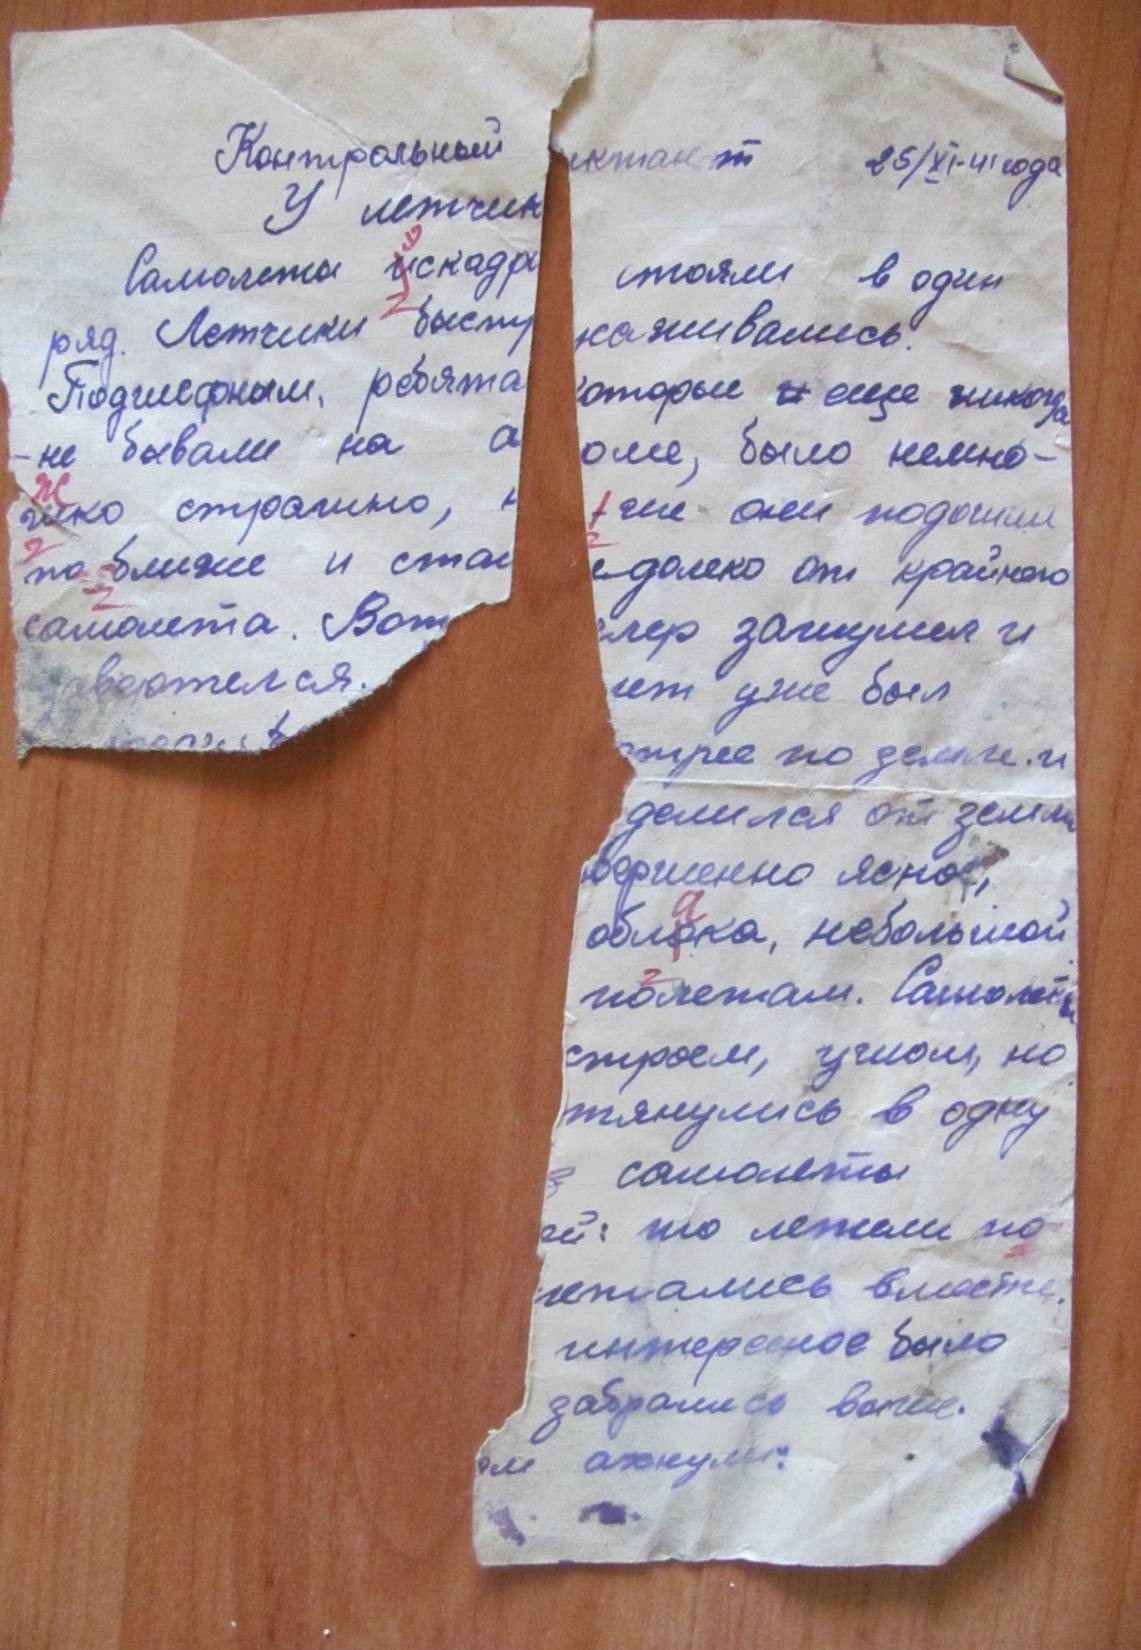 Контрольный иктант 25/XI-41 года
У летчик
Самолеты искадр стояли в один
ряд. Летчики быстр каживались.
Подшефным, ребята которые еще никогда
не бывали на а оме, было немно-
шко страшно, н ше они подошли
по ближе и стал едалеко от крайнего
самолета. Вот лер зашумел и
завертелся. лет уже был
стрее по земле и
делился от земли
вершенно ясно,
облока, небольшой
полетам. Самолеты
строем, углом, но
тянулись в одну
самолеты
ей: то летели по
летались вместе.
интересное было
забрались выше.
ом ахнули: